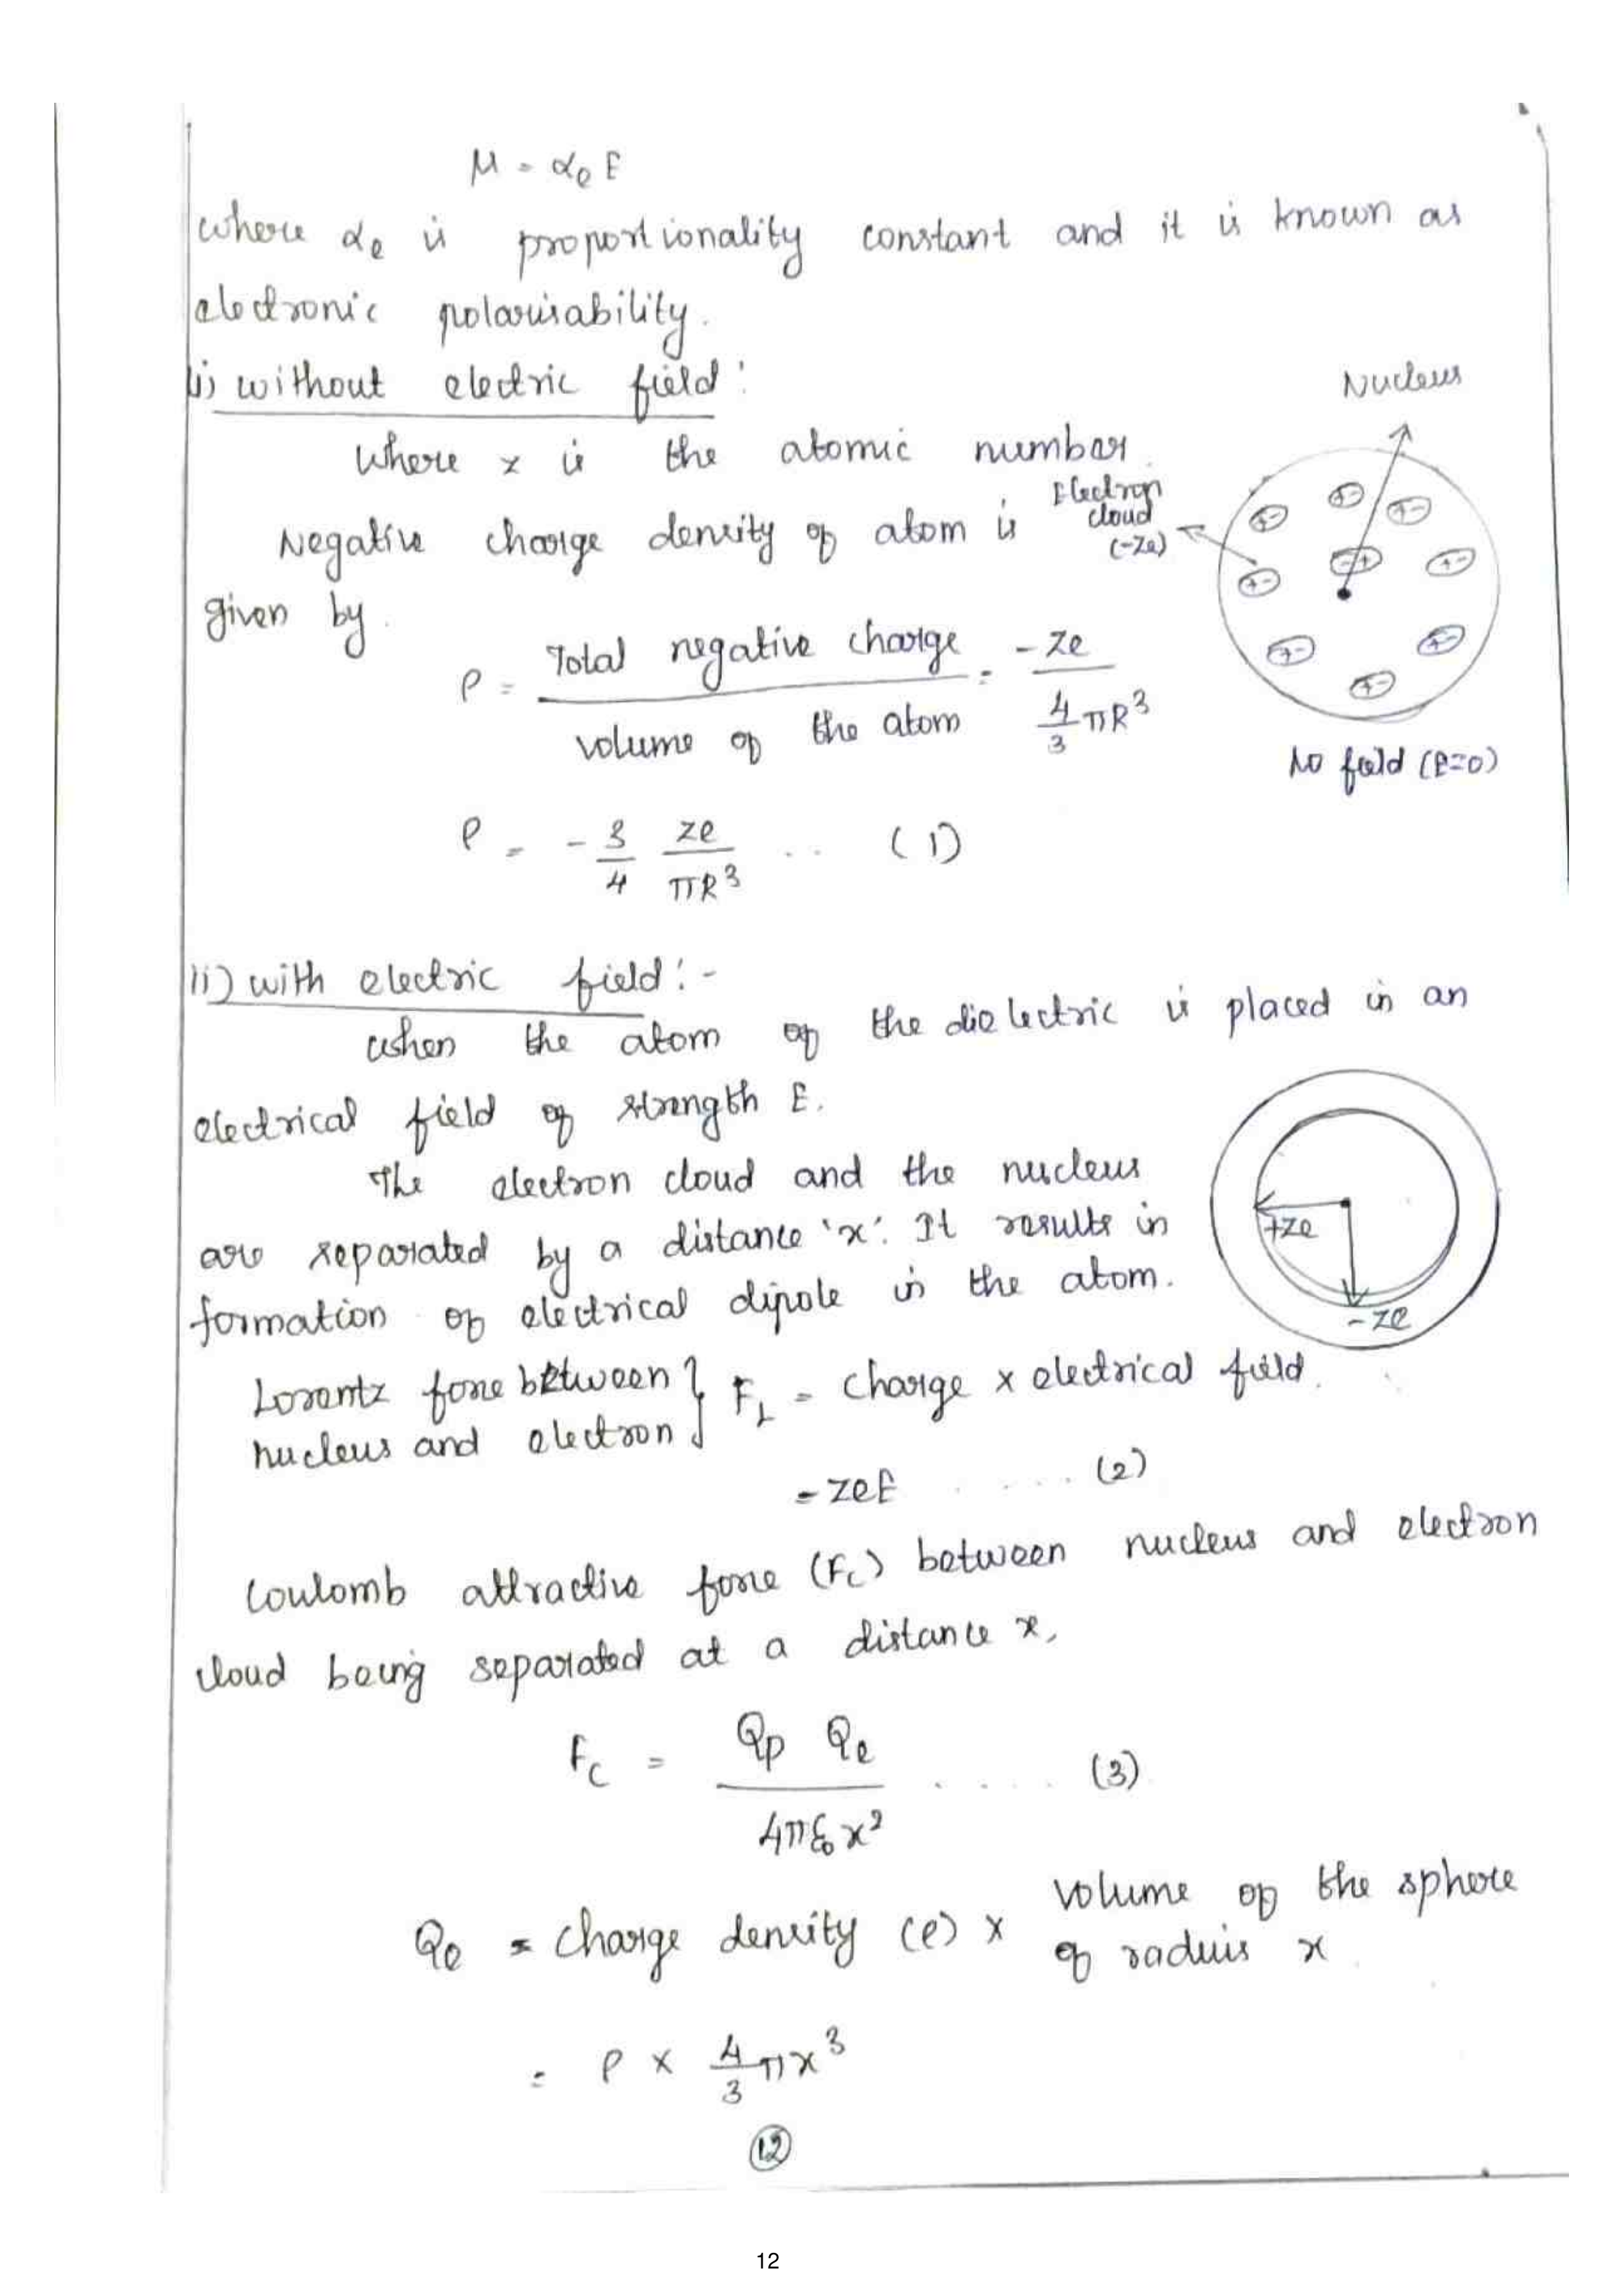 μ = αe E
where αe is proportionality constant and it is known as
electronic polarisability.
i) without electric field:
Nucleus
Where z is the atomic number.
Electron
cloud
(-Ze)
Negative charge density of atom is
given by.
ρ = Total negative charge / volume of the atom = -Ze / 4/3 πR³
No field (E=0)
ρ = - 3/4 Ze/πR³ .. (1)
ii) with electric field:-
when the atom of the dielectric is placed in an
electrical field of strength E.
The electron cloud and the nucleus
are separated by a distance 'x'. It results in
formation of electrical dipole in the atom.
+Ze
-Ze
Lorentz force between } F_L = charge x electrical field.
nucleus and electron
= ZeE ..... (2)
Coulomb attractive force (Fc) between nucleus and electron
cloud being separated at a distance x,
Fc = Qp Qe / 4πε₀x² ..... (3)
Qe = charge density (ρ) x volume of the sphere
of raduis x
= ρ x 4/3 πx³
12
12